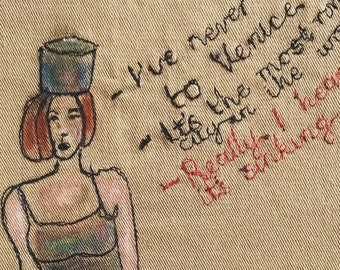 - I've never
to Venice.
- It's the most rom
city in the wo
- Really, I hear
it's sinking.